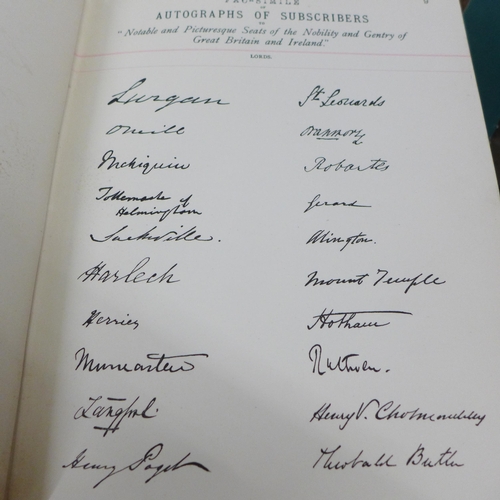 FAC-SIMILE
OF
AUTOGRAPHS OF SUBSCRIBERS
TO
"Notable and Picturesque Seats of the Nobility and Gentry of
Great Britain and Ireland."
LORDS.
Lurgan
St. Leonards
Oneill
Oranmore
Inchiquin
Robartes
Tollemache of
Helmingham
Gerard
Sackville.
Alington.
Harlech
Mount Temple
Herries
Hotham
Muncaster
Ruthven.
Henry V. Cholmondeley
Henry Paget
Theobald Butler